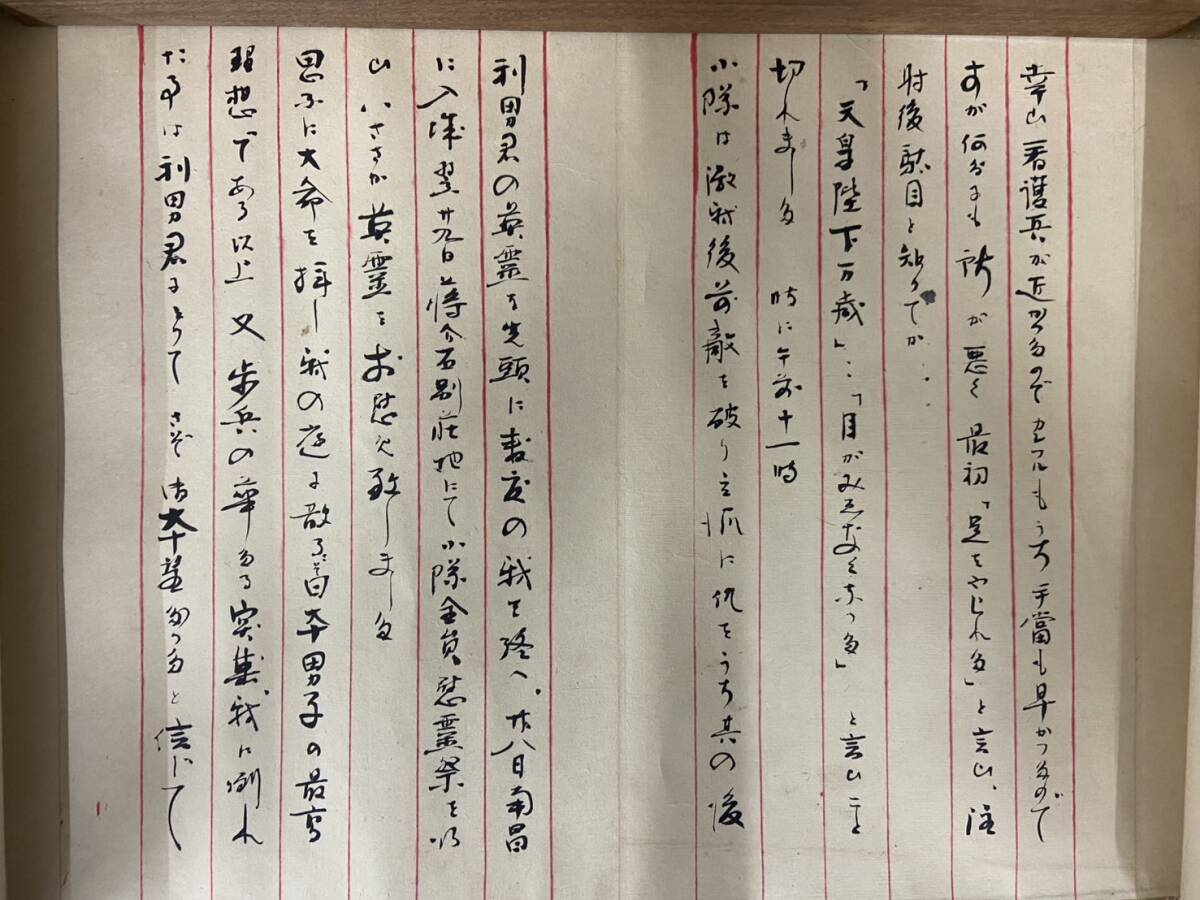 幸い看護兵が近かつたのでカンフルもうち手當も早かつたので
すが何分にも所が悪く最初「足をやられた」と言い、注
射後駄目と知つてか‥
「天皇陛下万歳」‥「目がみえなくなつた」と言いこと
切れました 時に午前十一時
小隊は激戦後前敵を破り立派に仇をうち其の後
利男君の英霊を先頭に数度の戦を終へ。廿八日南昌
に入城翌廿九日蒋介石別荘地にて小隊全員慰霊祭を行
いいささか英霊を お慰め致しました
思ふに大命を拝し戦の庭に散るこそ日本男子の最高
理想である以上 又歩兵の華たる突撃戦に倒れ
た事は利男君にとつて さぞ御本望だつたと信じて